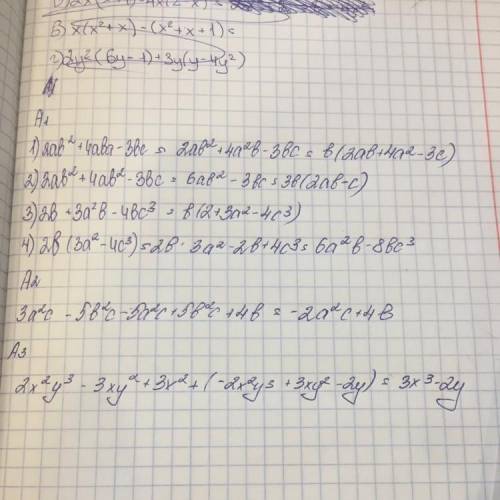 В) x(x²+x)-(x²+x+1)=
г) 2y²(6y-1)+3y(y-4y²)
A1
1) 2ab²+4aba-3bc = 2ab²+4a²b-3bc = b(2ab+4a²-3c)
2) 2ab²+4ab²-3bc = 6ab²-3bc = 3b(2ab-c)
3) 2b+3a²b-4bc³ = b(2+3a²-4c³)
4) 2b(3a²-4c³) = 2b·3a²-2b+4c³ = 6a²b-8bc³
A2
3a²c-5b²c-5a²c+5b²c+4b = -2a²c+4b
A3
2x²y³-3xy²+3x²+(-2x²y³+3xy²-2y) = 3x³-2y